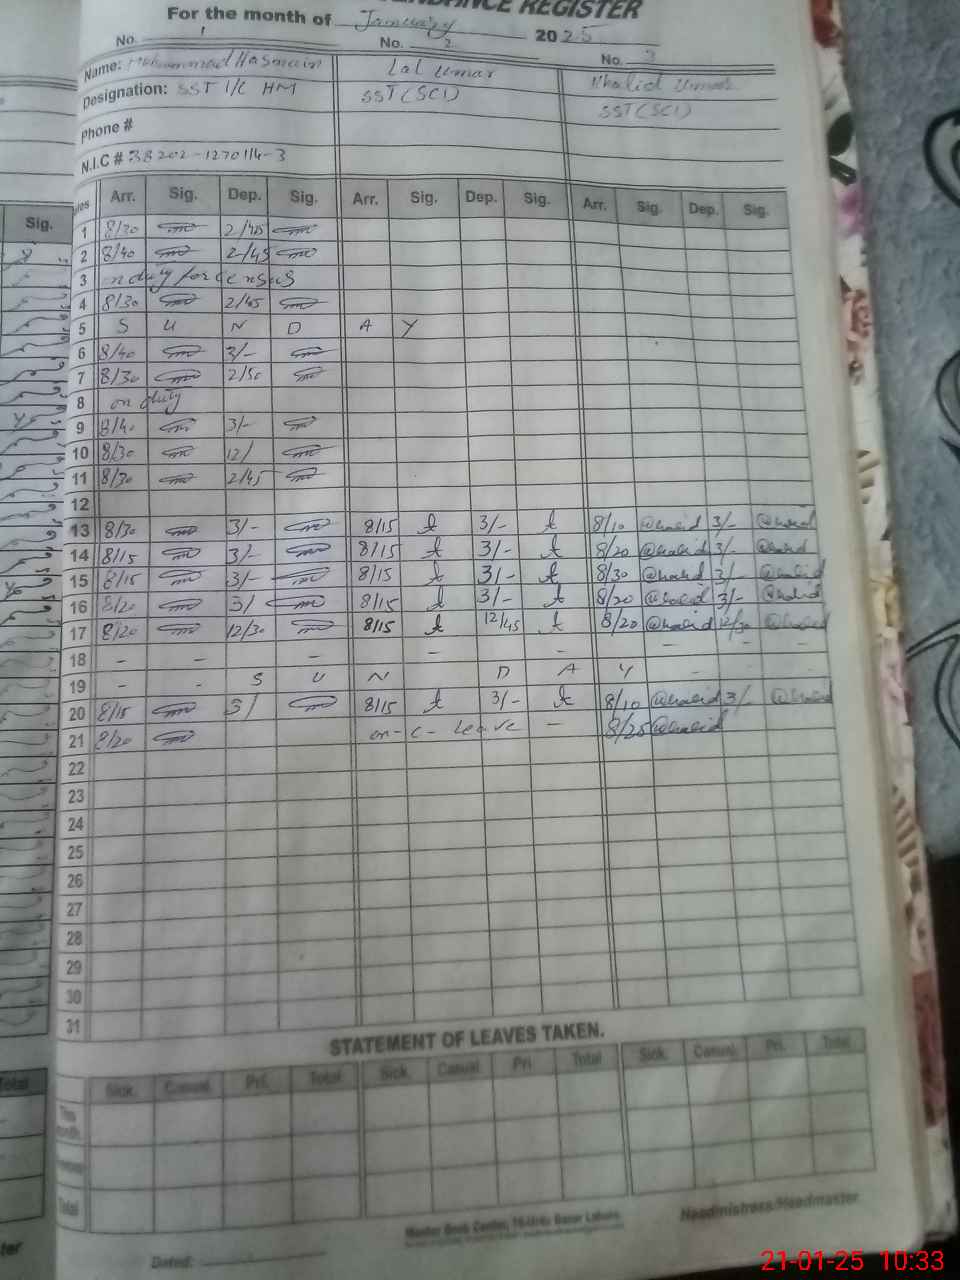 ATTENDANCE REGISTER
For the month of January 2025
No. 1 No. 2 No. 3
Name: Muhammad Hasnain Lal Umar Khalid Umar
Designation: SST I/C HM SST (SCI) SST (SCI)
Phone #
N.I.C # 38202-1270114-3
Sig. Arr. Sig. Dep. Sig. Arr. Sig. Dep. Sig. Arr. Sig. Dep. Sig.
1 8/30 2/45
2 8/40 2/45
3 on duty for census
4 8/30 2/45
5 S U N D A Y
6 8/40 3/-
7 8/30 2/50
8 on duty
9 8/40 3/-
10 8/30 12/
11 8/30 2/45
12
13 8/30 3/- 8/15 3/- 8/10 @halid 3/- @halid
14 8/15 3/- 8/15 3/- 8/20 @halid 3/- @halid
15 8/15 3/- 8/15 3/- 8/30 @halid 3/- @halid
16 8/20 3/ 8/15 3/- 8/20 @halid 3/- @halid
17 8/20 12/30 8/15 12/45 8/20 @halid 12/30 @halid
18 - - - - - - - -
19 - - S U N D A Y - - -
20 8/15 3/ 8/15 3/- 8/10 @halid 3/- @halid
21 8/20 on-c-leave - 8/25 @halid
22
23
24
25
26
27
28
29
30
31
STATEMENT OF LEAVES TAKEN.
Total Sick. Casual. Pri. Total Sick. Casual. Pri. Total Sick. Casual. Pri. Total
This Month.
Total
Master Book Center, Urdu Bazar Lahore.
Headmistress/Headmaster
Dated:
21-01-25 10:33